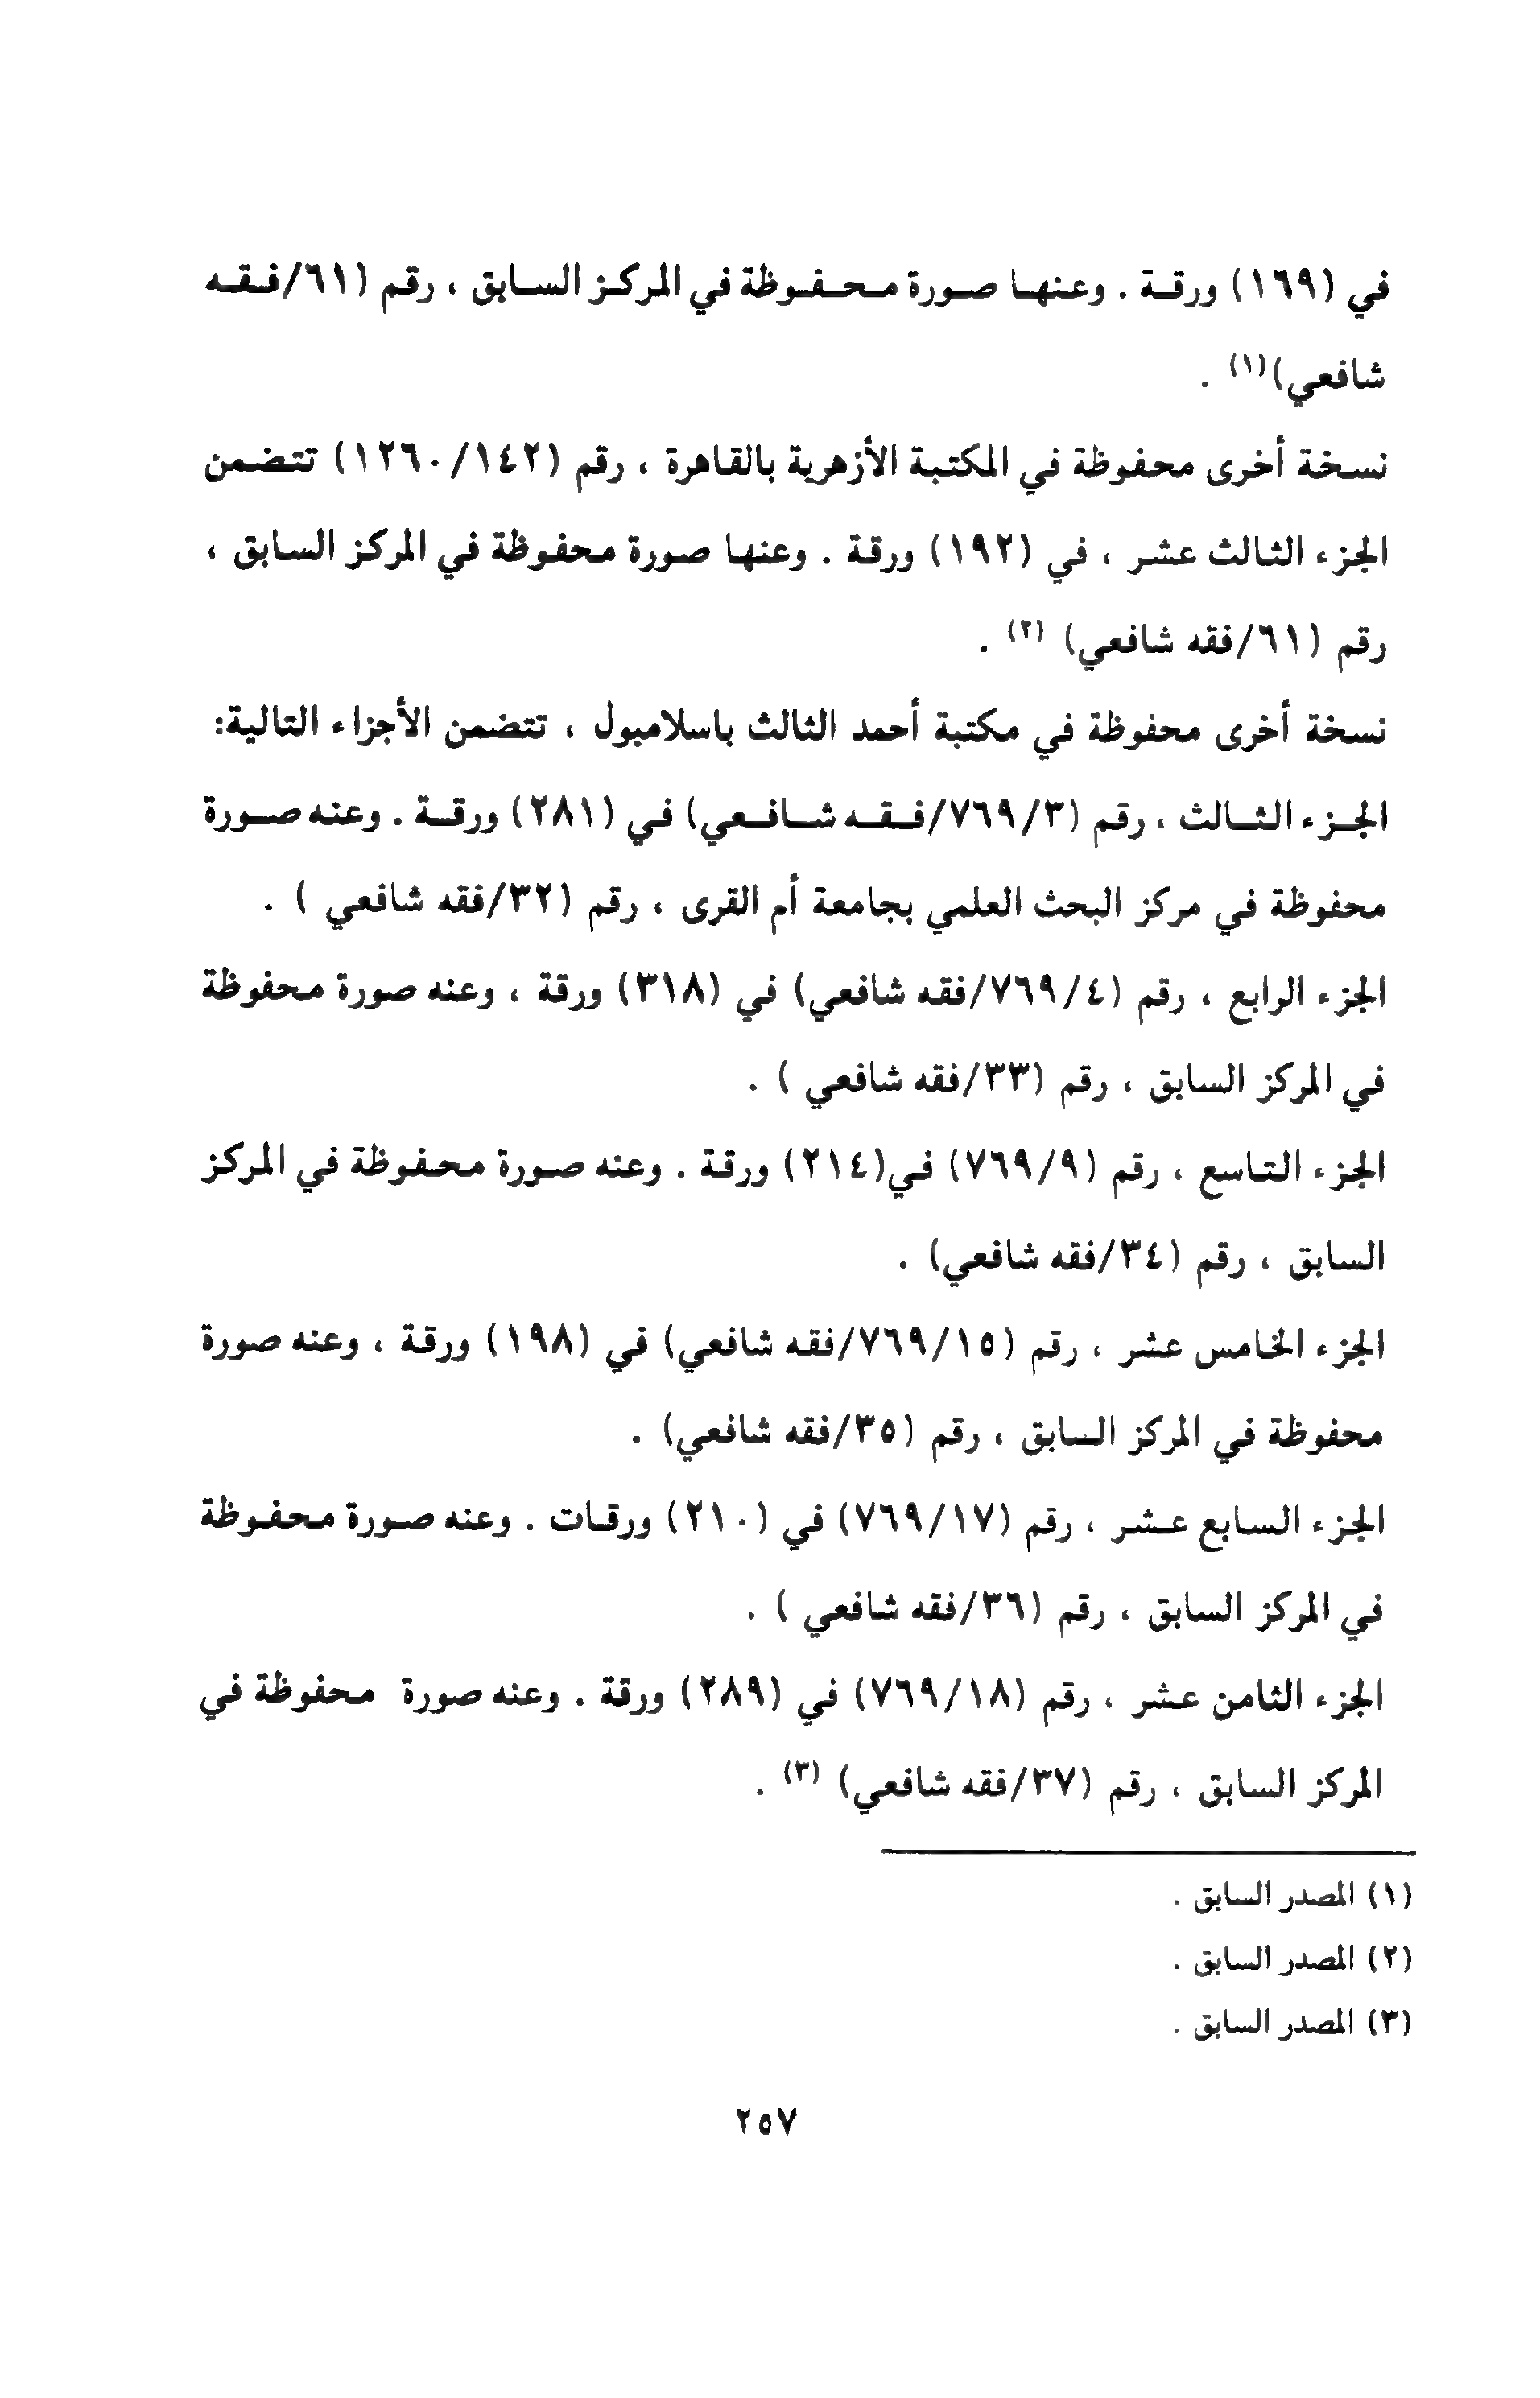 في (١٦٩) ورقة . وعنها صورة محفوظة في المركز السابق ، رقم (٦١/فقه
شافعي)(١) .
نسخة أخرى محفوظة في المكتبة الأزهرية بالقاهرة ، رقم (١٢٦٠/١٤٢) تتضمن
الجزء الثالث عشر ، في (١٩٢) ورقة . وعنها صورة محفوظة في المركز السابق ،
رقم (٦١/فقه شافعي) (٢) .
نسخة أخرى محفوظة في مكتبة أحمد الثالث باسلامبول ، تتضمن الأجزاء التالية:
الجزء الثالث ، رقم (٧٦٩/٣/فقه شافعي) في (٢٨١) ورقة . وعنه صورة
محفوظة في مركز البحث العلمي بجامعة أم القرى ، رقم (٣٢/فقه شافعي ) .
الجزء الرابع ، رقم (٧٦٩/٤/فقه شافعي) في (٣١٨) ورقة ، وعنه صورة محفوظة
في المركز السابق ، رقم (٣٣/فقه شافعي ) .
الجزء التاسع ، رقم (٧٦٩/٩) في(٢١٤) ورقة . وعنه صورة محفوظة في المركز
السابق ، رقم (٣٤/فقه شافعي) .
الجزء الخامس عشر ، رقم (٧٦٩/١٥/فقه شافعي) في (١٩٨) ورقة ، وعنه صورة
محفوظة في المركز السابق ، رقم (٣٥/فقه شافعي) .
الجزء السابع عشر ، رقم (٧٦٩/١٧) في (٢١٠) ورقات . وعنه صورة محفوظة
في المركز السابق ، رقم (٣٦/فقه شافعي ) .
الجزء الثامن عشر ، رقم (٧٦٩/١٨) في (٢٨٩) ورقة . وعنه صورة محفوظة في
المركز السابق ، رقم (٣٧/فقه شافعي) (٣) .
(١) المصدر السابق .
(٢) المصدر السابق .
(٣) المصدر السابق .
٢٥٧